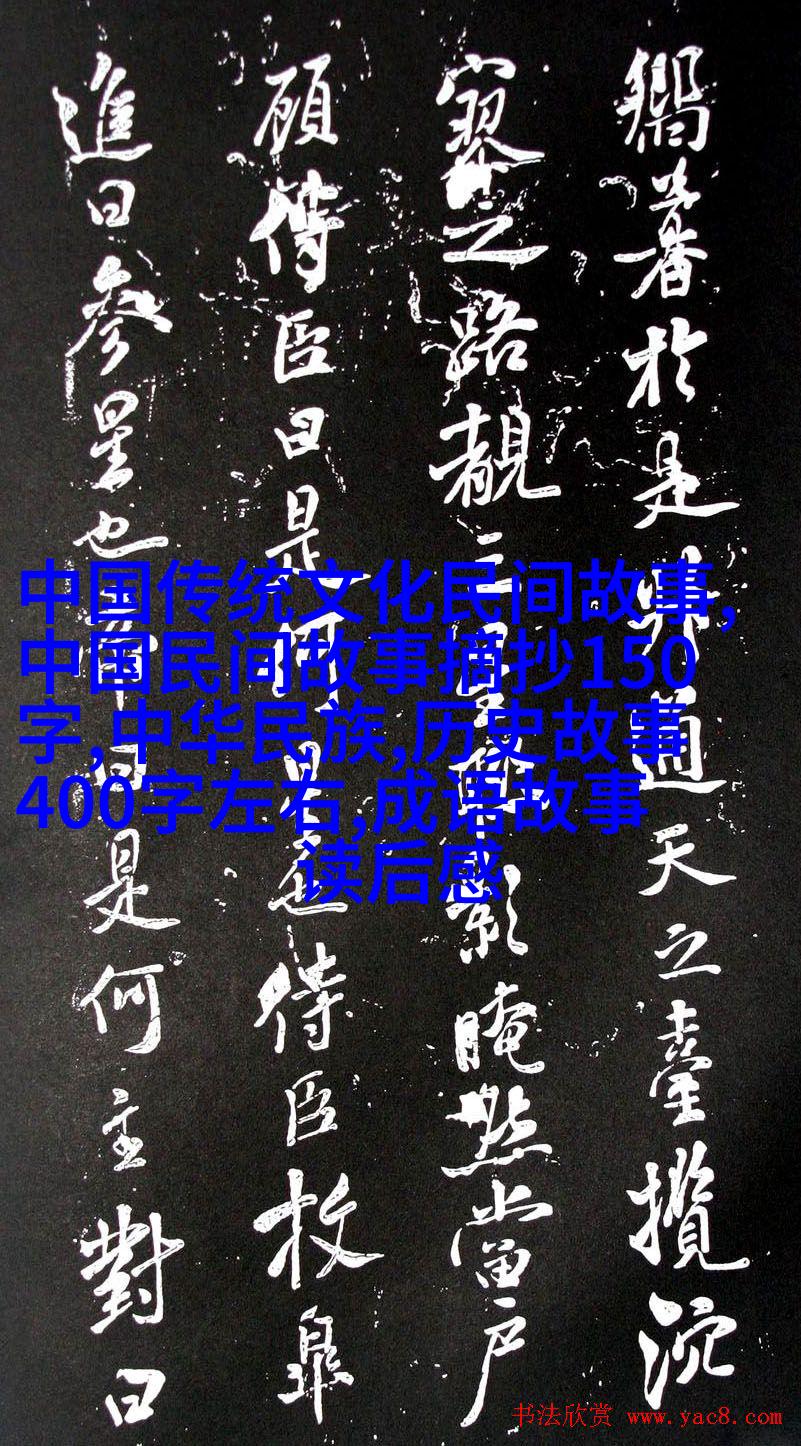 嚮暮於是升通天之臺攬泬
寥之路覩三星影晻然當戶
顧待臣曰是何星也待臣枚皋
進曰參星也帝曰是何主對曰
中国传统文化民间故事,
中国民间故事摘抄150
字,中华民族,历史故事
400字左右,成语故事
读后感
书法欣赏 www.yac8.com